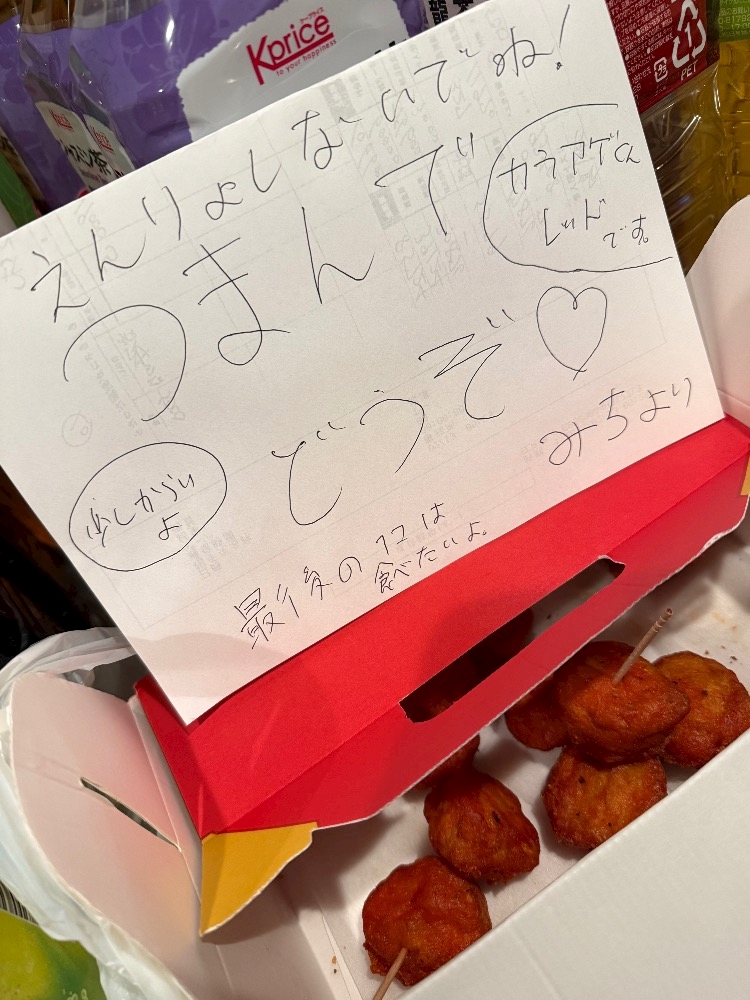 Kprice
to your happiness
Kprice
ジャスミン茶
PET
えんりょしないでね!
つまんで
カラアゲくん
レッド
です。
どうぞ♡
みちより
少しからい
よ
最後の1コは
食べたいよ。